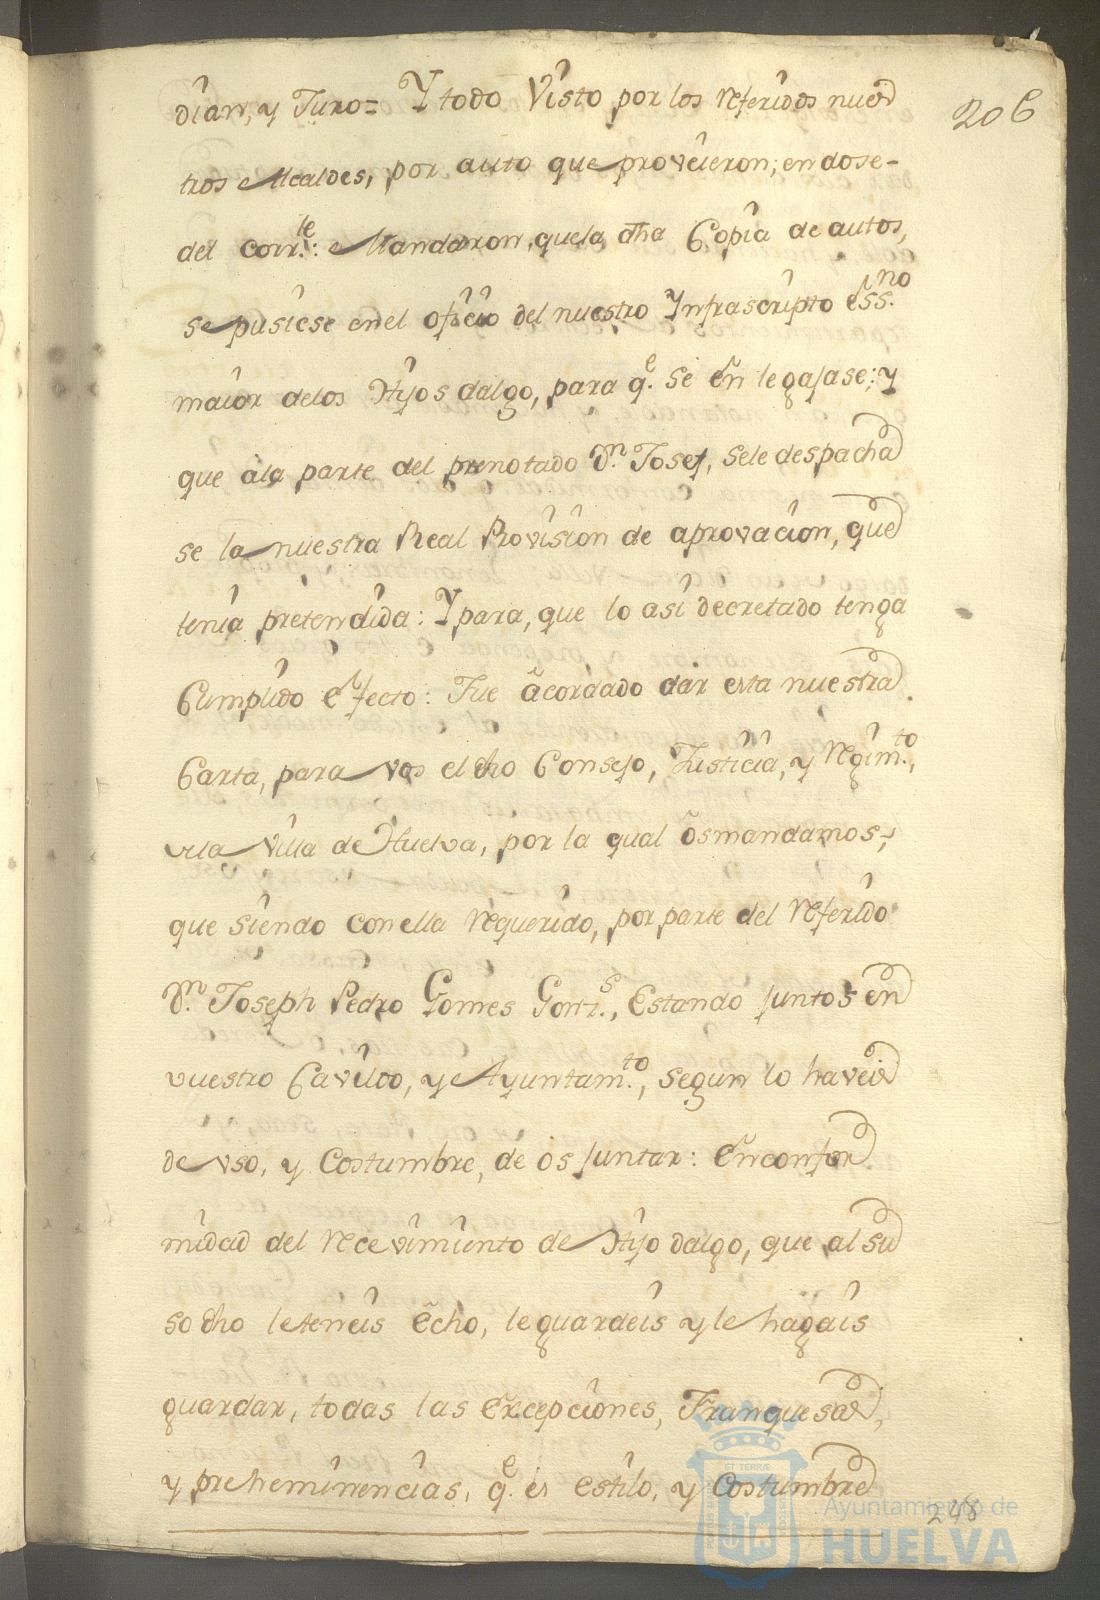 206
dian, y Juro= Y todo Visto por los referidos nues
tros Alcaldes, por auto que proveieron, en dose-
del corr.te: Mandaron, que la dha Copia de autos,
se pusiese en el oficio del nuestro Infrascripto ess.no
maior de los Hijos dalgo, para q.e se en legajase; y
que à la parte del prenotado D.n Josef, se le despacha
se la nuestra Real Provision de aprovacion, que
tenia pretendida: Y para, que lo asi decretado tenga
Cumplido efecto: Fue acordado dar esta nuestra
Carta, para vos el dho Consejo, Justicia, y Regim.to,
la villa de Huelva, por la qual os mandamos,
que siendo con ella requerido, por parte del referido
D.n Joseph Pedro Gomes Gonz.s, Estando juntos en
vuestro Cavildo, y Ayuntam.to, segun lo haveis
de vso, y Costumbre, de os juntar: En confor
midad del recevimiento de Hijo dalgo, que al su
so dho le teneis echo, le guardeis y le hagais
guardar, todas las Excepciones, Franquesas,
y preheminencias, q.e es estilo, y Costumbre
248
Ayuntamiento de
HUELVA